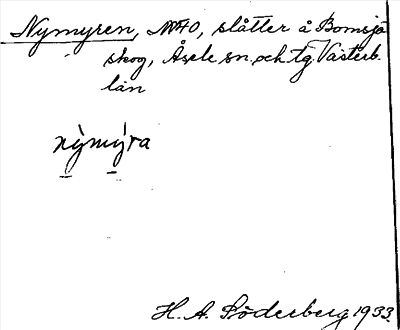 Nymyren, slåtter å Bomsjö
skog, Åsele sn. och tg. Västerb.
län
nỳmýra
H. A. Söderberg 1933.